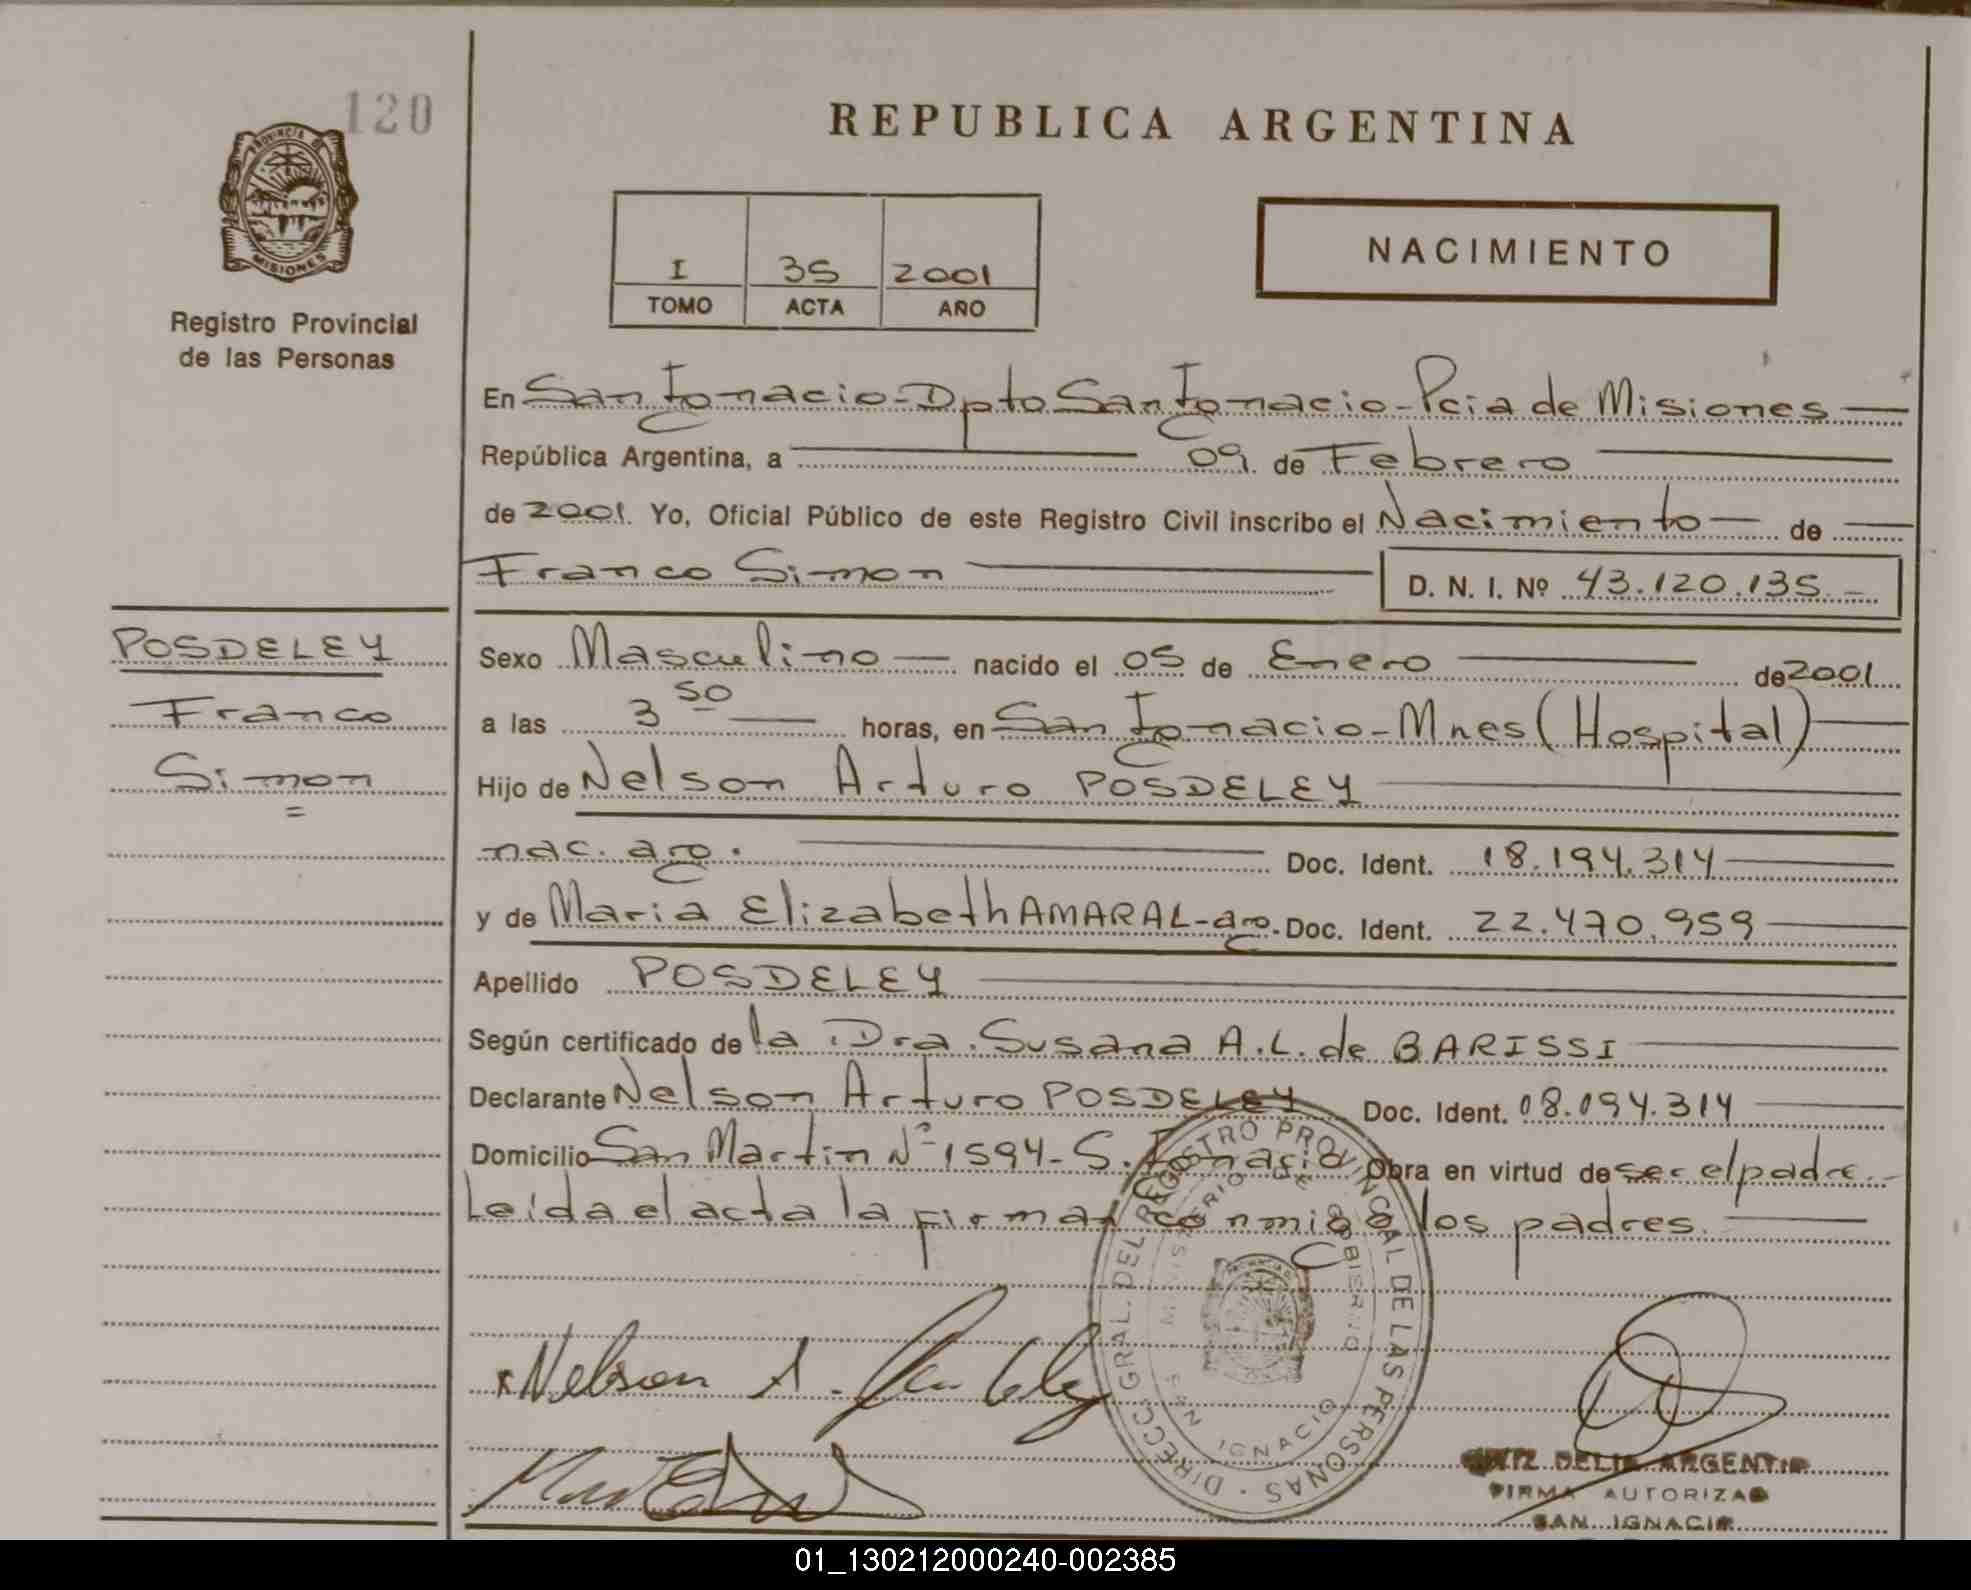 120
PROVINCIA DE
MISIONES
Registro Provincial
de las Personas
REPUBLICA ARGENTINA
I 35 2001
TOMO ACTA AÑO
NACIMIENTO
En San Ignacio - Dpto San Ignacio - Pcia de Misiones
República Argentina, a 09 de Febrero
de 2001. Yo, Oficial Público de este Registro Civil inscribo el Nacimiento de
Franco Simon D. N. I. Nº 43.120.135
POSDELEY
Franco
Simon
Sexo Masculino nacido el 05 de Enero de 2001
a las 3 50 horas, en San Ignacio - Mnes (Hospital)
Hijo de Nelson Arturo POSDELEY
nac. arg. Doc. Ident. 18.194.314
y de Maria Elizabeth AMARAL - arg. Doc. Ident. 22.470.959
Apellido POSDELEY
Según certificado de la Dra. Susana A. L. de BARISSI
Declarante Nelson Arturo POSDELEY Doc. Ident. 08.094.314
Domicilio San Martin Nº 1594 - S. Ignacio Obra en virtud de ser el padre
Leida el acta la firman conmigo los padres.
DIRECC. GRAL. DEL REGISTRO PROVINCIAL DE LAS PERSONAS
MINISTERIO DE GOBIERNO
SAN IGNACIO
Nelson A.
DELIA ARGENTINA
FIRMA AUTORIZADA
SAN IGNACIO
01_130212000240-002385